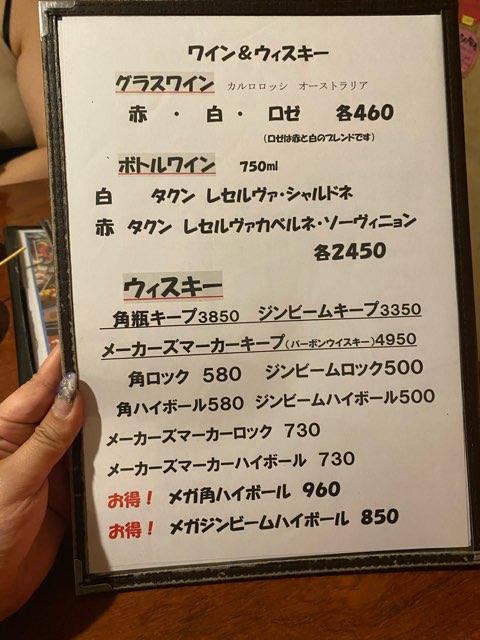 ワイン＆ウィスキー
グラスワイン カルロロッシ オーストラリア
赤 ・ 白 ・ ロゼ 各460
(ロゼは赤と白のブレンドです)
ボトルワイン 750ml
白 タクン レセルヴァ・シャルドネ
赤 タクン レセルヴァカベルネ・ソーヴィニョン
各2450
ウィスキー
角瓶キープ3850 ジンビームキープ3350
メーカーズマーカーキープ(バーボンウイスキー)4950
角ロック 580 ジンビームロック500
角ハイボール580 ジンビームハイボール500
メーカーズマーカロック 730
メーカーズマーカハイボール 730
お得！ メガ角ハイボール 960
お得！ メガジンビームハイボール 850